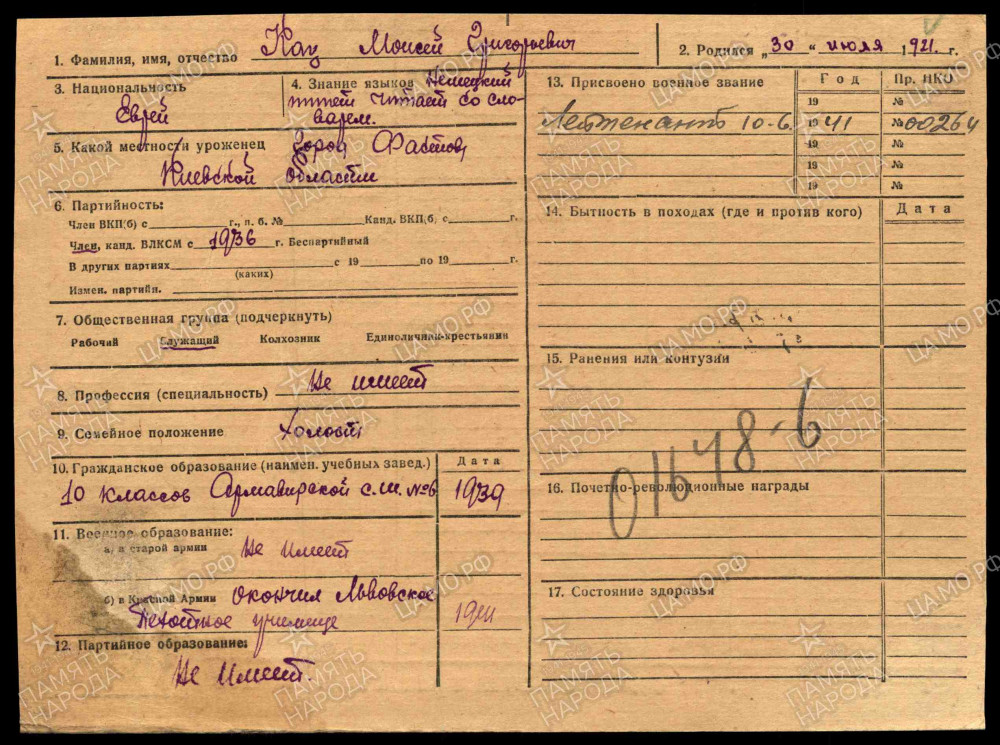 1. Фамилия, имя, отчество Кац Моисей Григорьевич
2. Родился „30“ июля 1921. г.
3. Национальность
Еврей
4. Знание языков Немецкий
пишет читает со сло-
варем.
5. Какой местности уроженец город Фастов,
Киевской области
6. Партийность:
Член ВКП(б) с г., п. б. № Канд. ВКП(б) с г.
Член, канд. ВЛКСМ с 1936 г. Беспартийный
В других партиях с 19 по 19 г.
(каких)
Измен. партийн.
7. Общественная группа (подчеркнуть)
Рабочий Служащий Колхозник Единоличник-крестьянин
8. Профессия (специальность) Не имеет
9. Семейное положение холост
10. Гражданское образование (наимен. учебных завед.) Дата
10 классов Армавирской с.ш. №6 1939
11. Военное образование:
а) в старой армии Не имеет
б) в Красной Армии окончил Львовское
Пехотное училище 1941
12. Партийное образование:
Не имеет.
13. Присвоено военное звание Год Пр. НКО
19 №
Лейтенант 10-6 1941 №00264
19 №
19 №
19 №
14. Бытность в походах (где и против кого) Дата
15. Ранения или контузии
01648-6
16. Почетно-революционные награды
17. Состояние здоровья
ПАМЯТЬ НАРОДА
ЦАМО.РФ